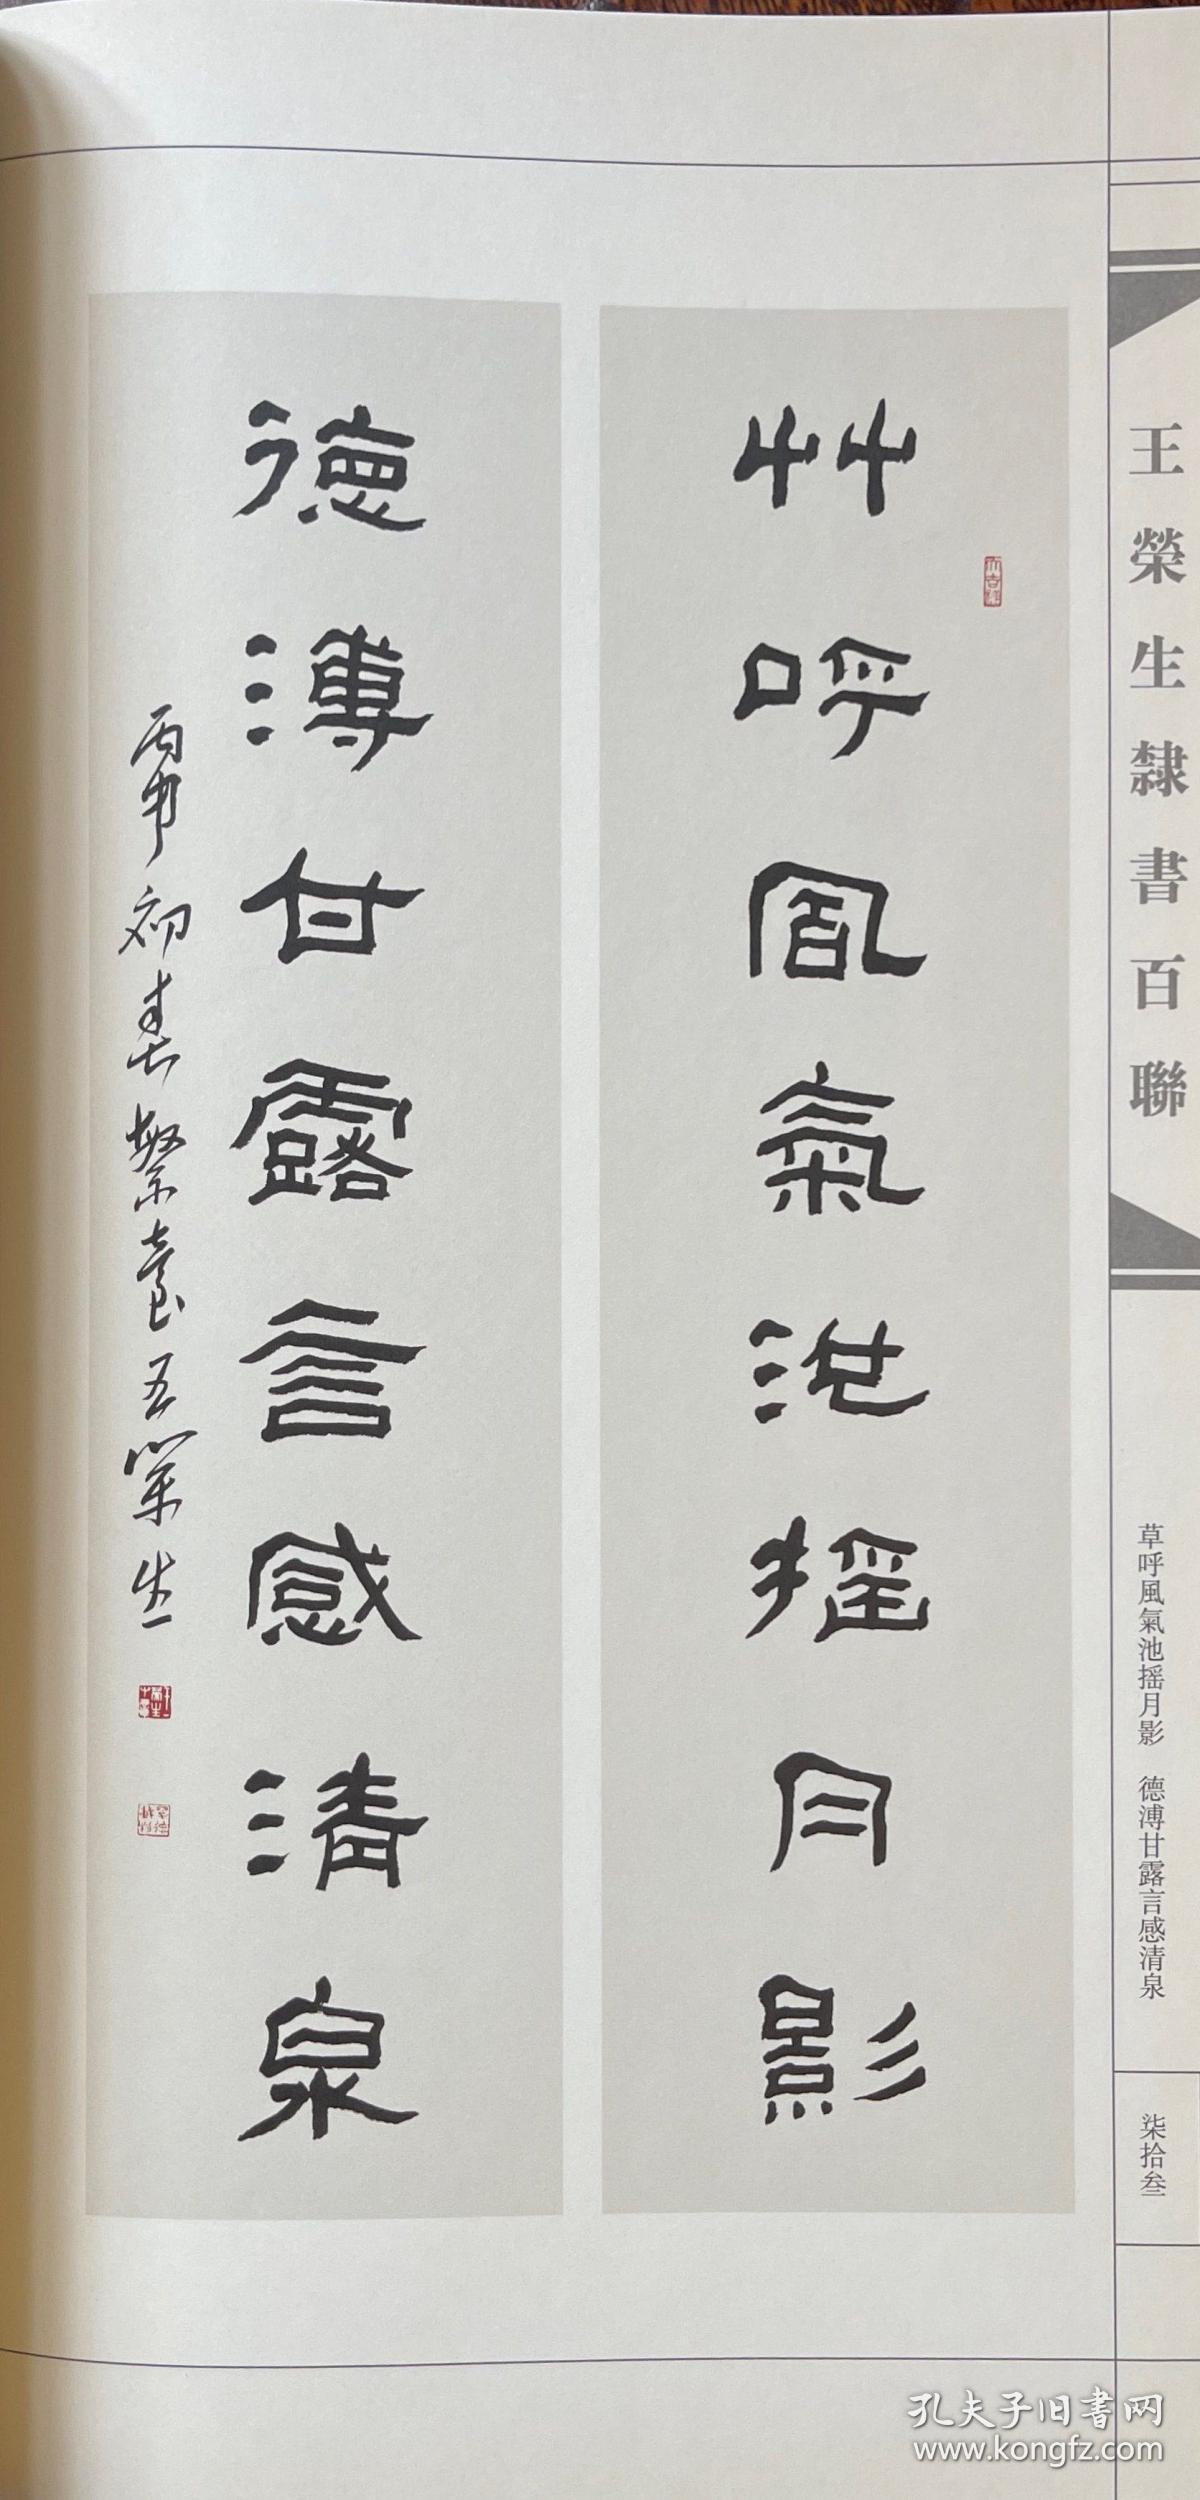 王榮生隸書百聯
草呼風氣池摇月影 德溥甘露言感清泉
柒拾叁
艸呼風氣池摇月影
德溥甘露言感清泉
丙申初春繁臺王榮生
孔夫子旧书网
www.kongfz.com